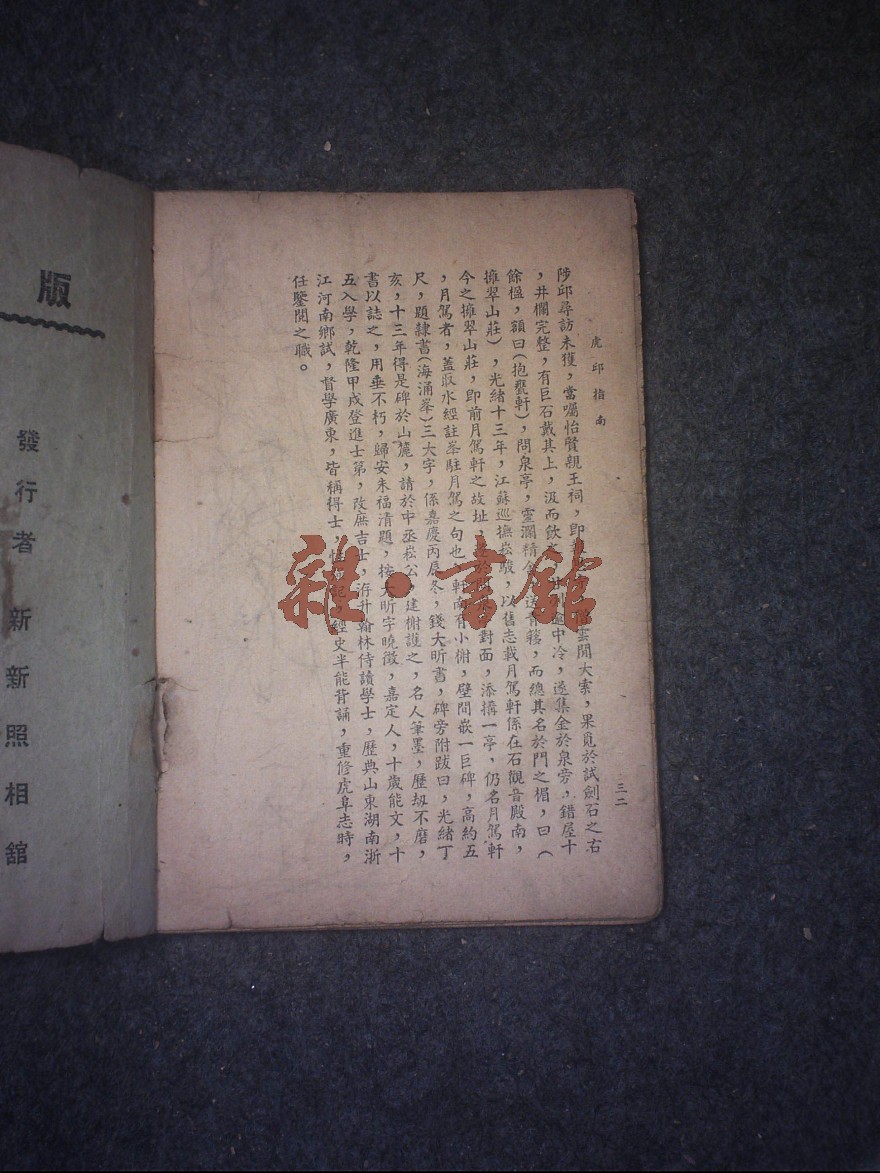 虎邱指南
三二
陟邱尋訪未獲，當囑怡賢親王祠，即 雲閒大索，果覓於試劍石之右
，井欄完整，有巨石戴其上，汲而飲 中冷，遂集金於泉旁，錯屋十
餘楹，額曰（抱甕軒），問泉亭，靈瀾精舍，送青簃，而總其名於門之楣，曰（
擁翠山莊），光緒十三年，江蘇巡撫崧駿，以舊志載月駕軒係在石觀音殿南，
今之擁翠山莊，即前月駕軒之故址， 對面，添搆一亭，仍名月駕軒
，月駕者，蓋取水經註峯駐月駕之句也，軒南有小榭，壁間嵌一巨碑，高約五
尺，題隸書（海涌峯）三大字，係嘉慶丙辰冬，錢大昕書，碑旁附跋曰，光緒丁
亥，十三年得是碑於山麓，請於中丞崧公，建榭護之，名人筆墨，歷刼不磨，
書以誌之，用垂不朽，歸安朱福清題，按大昕字曉徵，嘉定人，十歲能文，十
五入學，乾隆甲戌登進士第，改庶吉士，洊升翰林侍讀學士，歷典山東湖南浙
江河南鄉試，督學廣東，皆稱得士， 經史半能背誦，重修虎阜志時，
任鑒閱之職。
版
發行者 新新照相舘
雜·書舘